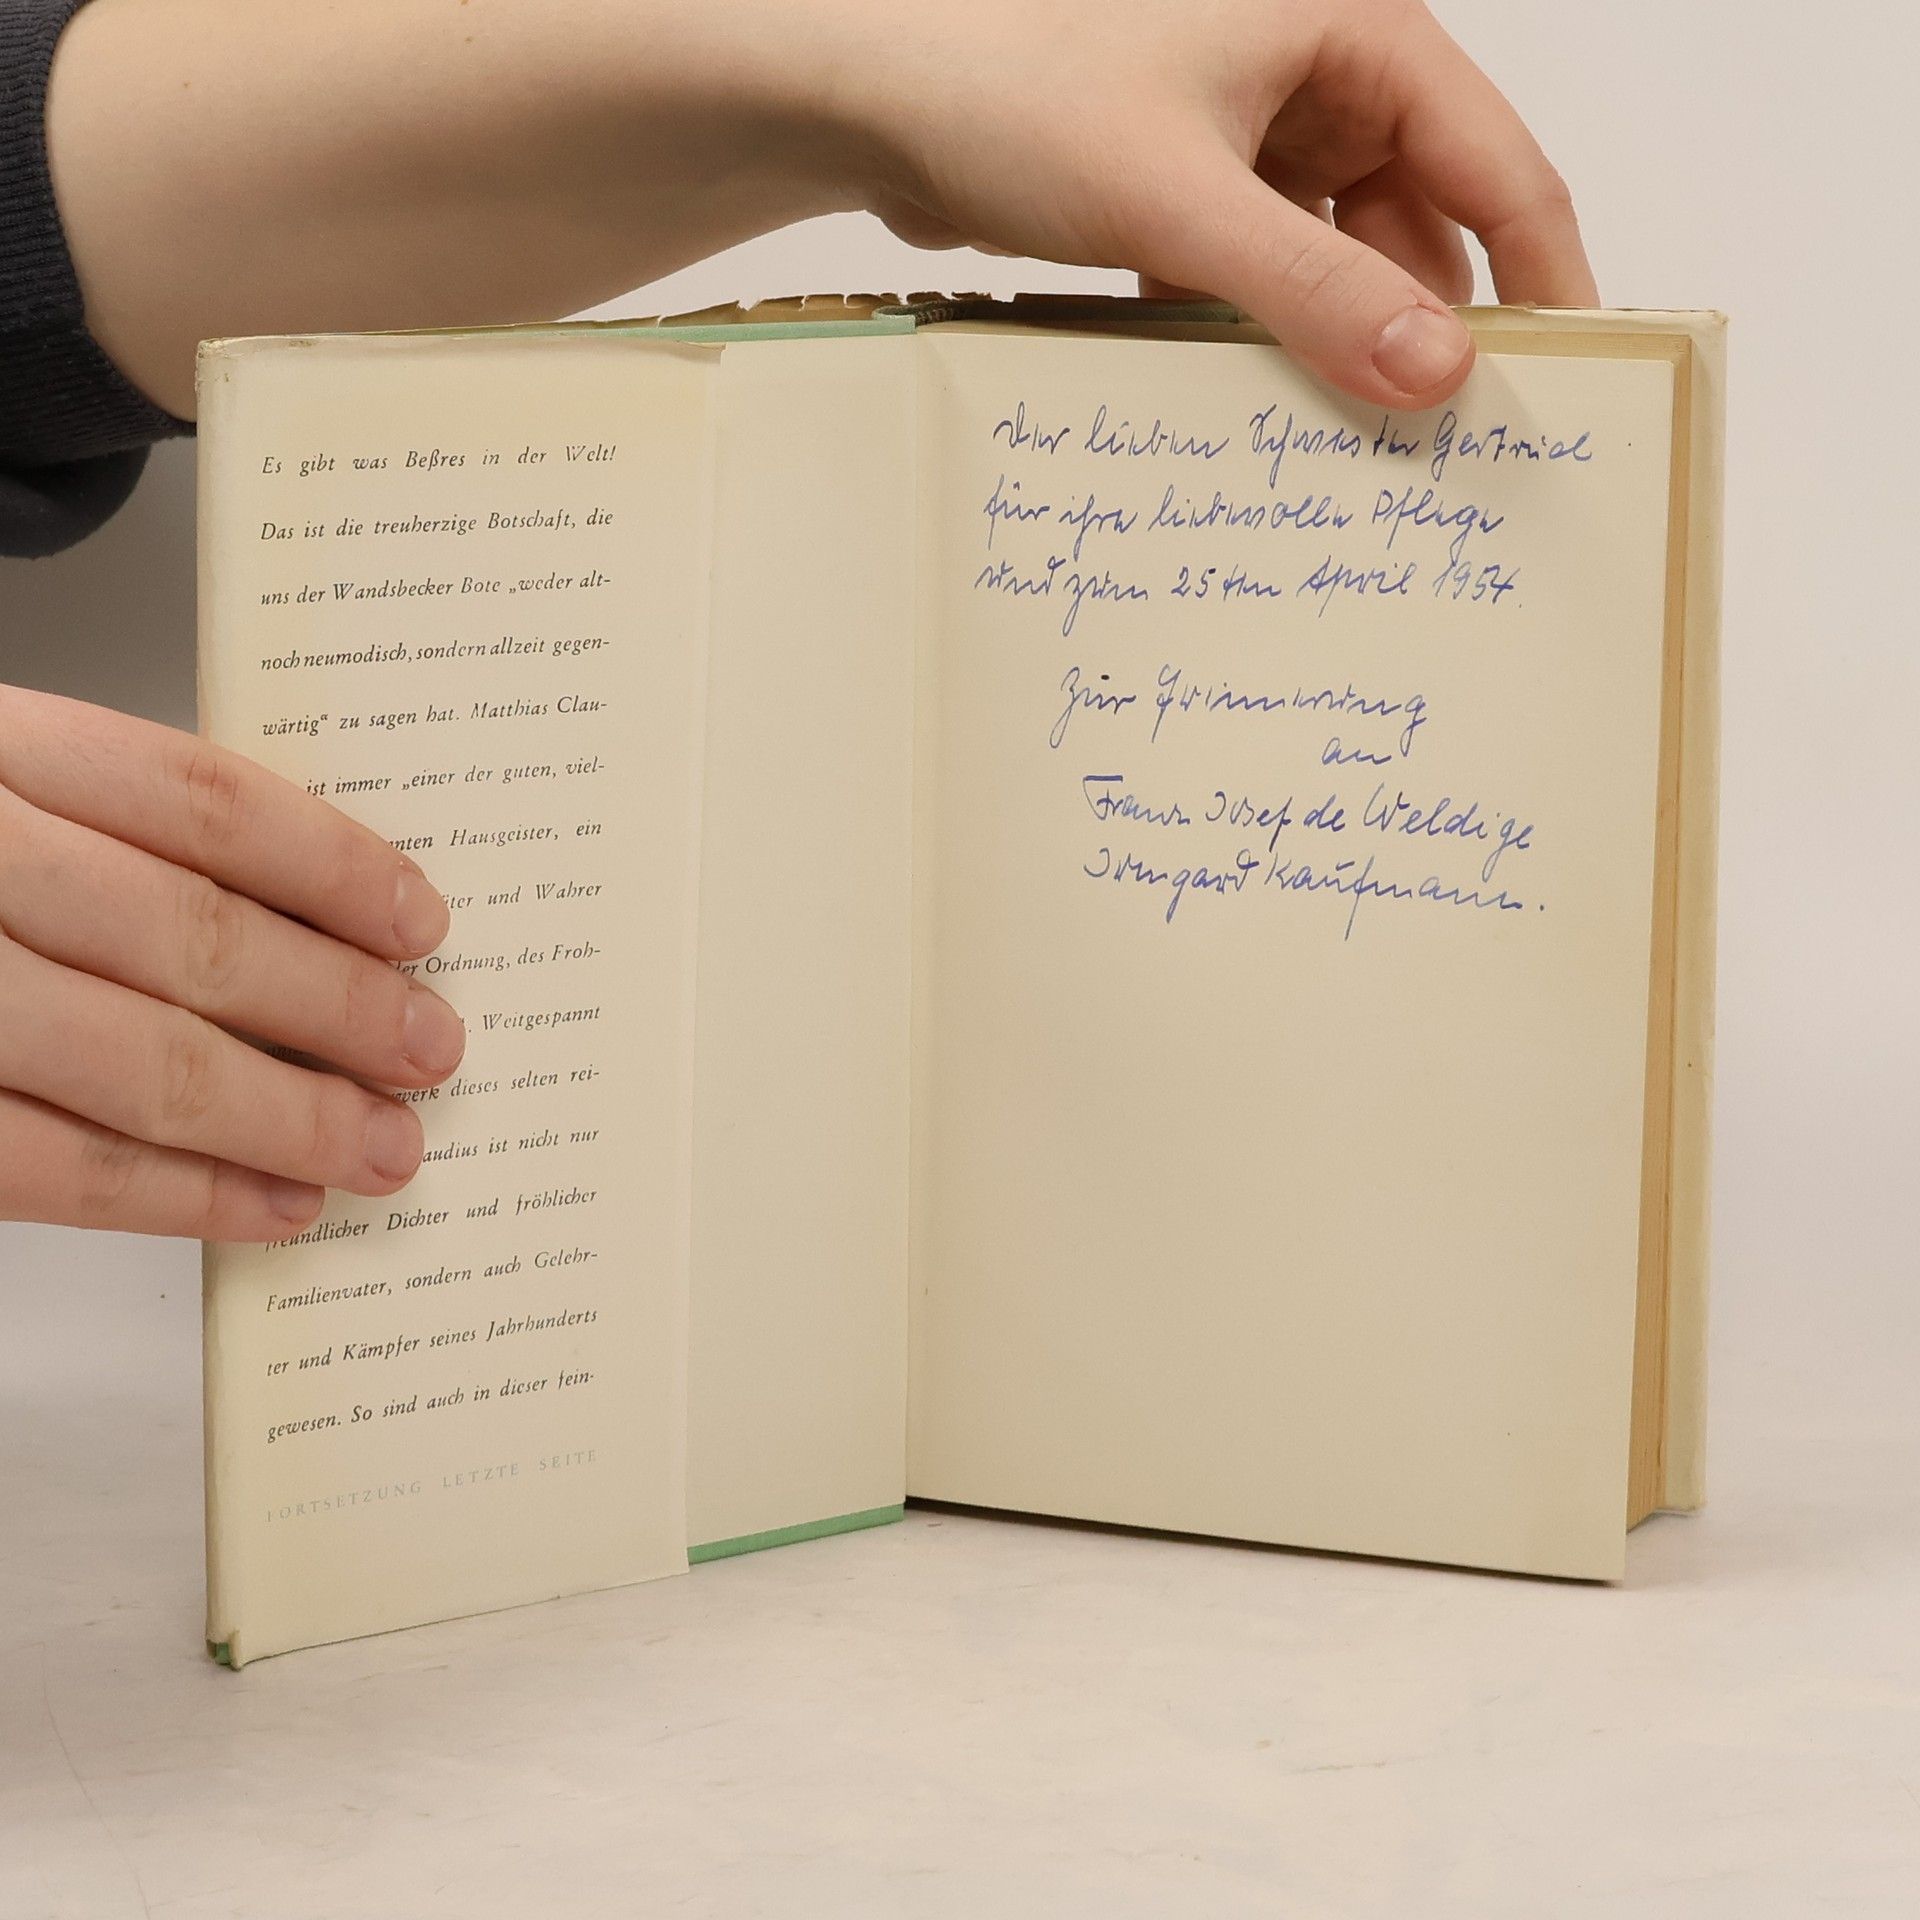 Es gibt was Beßres in der Welt!
Das ist die treuherzige Botschaft, die
uns der Wandsbecker Bote „weder alt-
noch neumodisch, sondern allzeit gegen-
wärtig“ zu sagen hat. Matthias Clau-
ist immer „einer der guten, viel-
nten Hausgeister, ein
üter und Wahrer
der Ordnung, des Froh-
“. Weitgespannt
werk dieses selten rei-
audius ist nicht nur
freundlicher Dichter und fröhlicher
Familienvater, sondern auch Gelehr-
ter und Kämpfer seines Jahrhunderts
gewesen. So sind auch in dieser fein-
FORTSETZUNG LETZTE SEITE
Der lieben Schwester Gertrud
für ihre liebevolle Pflege
und zum 25ten April 1954.
Zur Erinnerung
an
Franz Josef de Weldige
Irmgard Kaufmann.